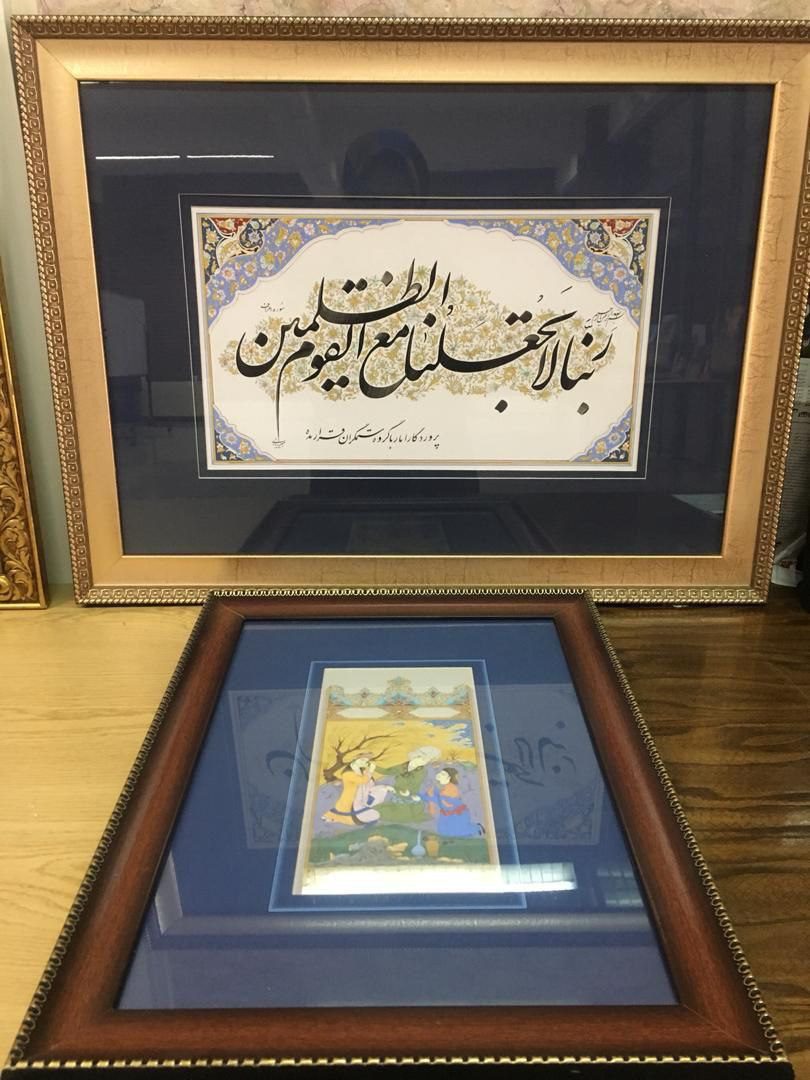 ربنا لا تجعلنا مع القوم الظلمین
سوره اعراف
پروردگارا ما را با گروه ستمگران قرار مده